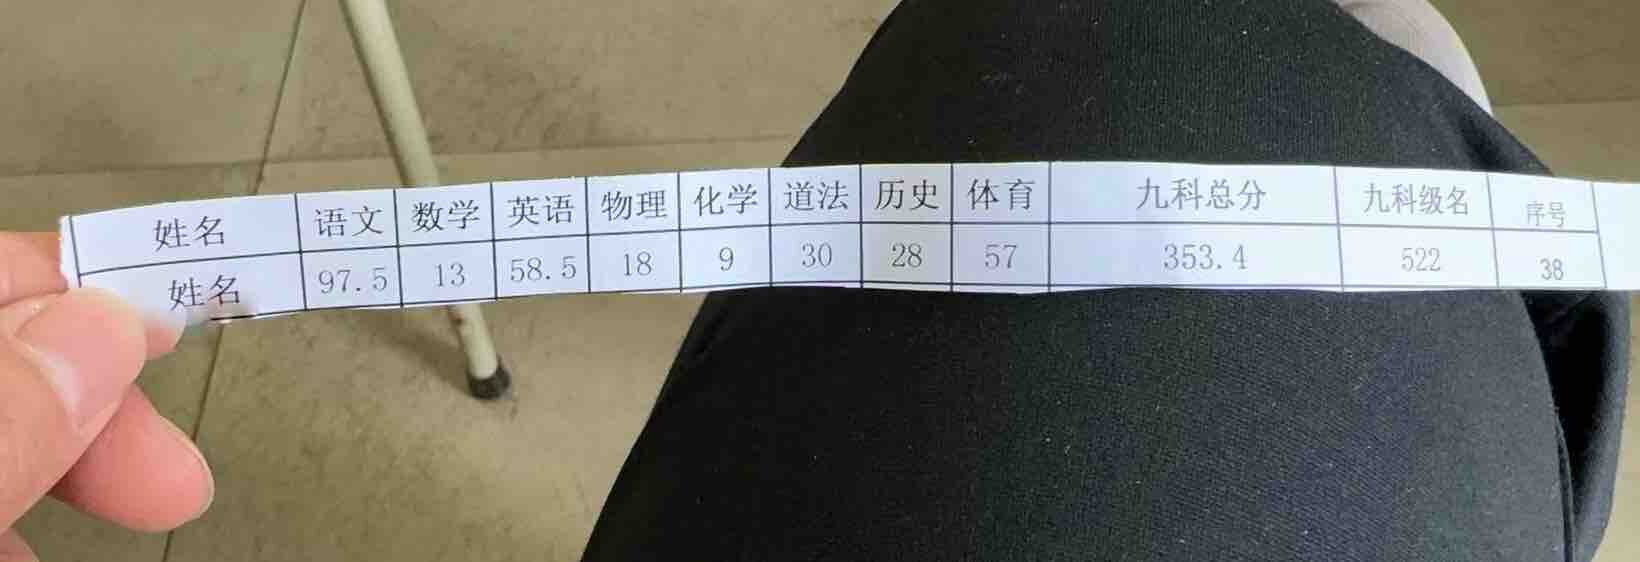 姓名 语文 数学 英语 物理 化学 道法 历史 体育 九科总分 九科级名 序号
姓名 97.5 13 58.5 18 9 30 28 57 353.4 522 38